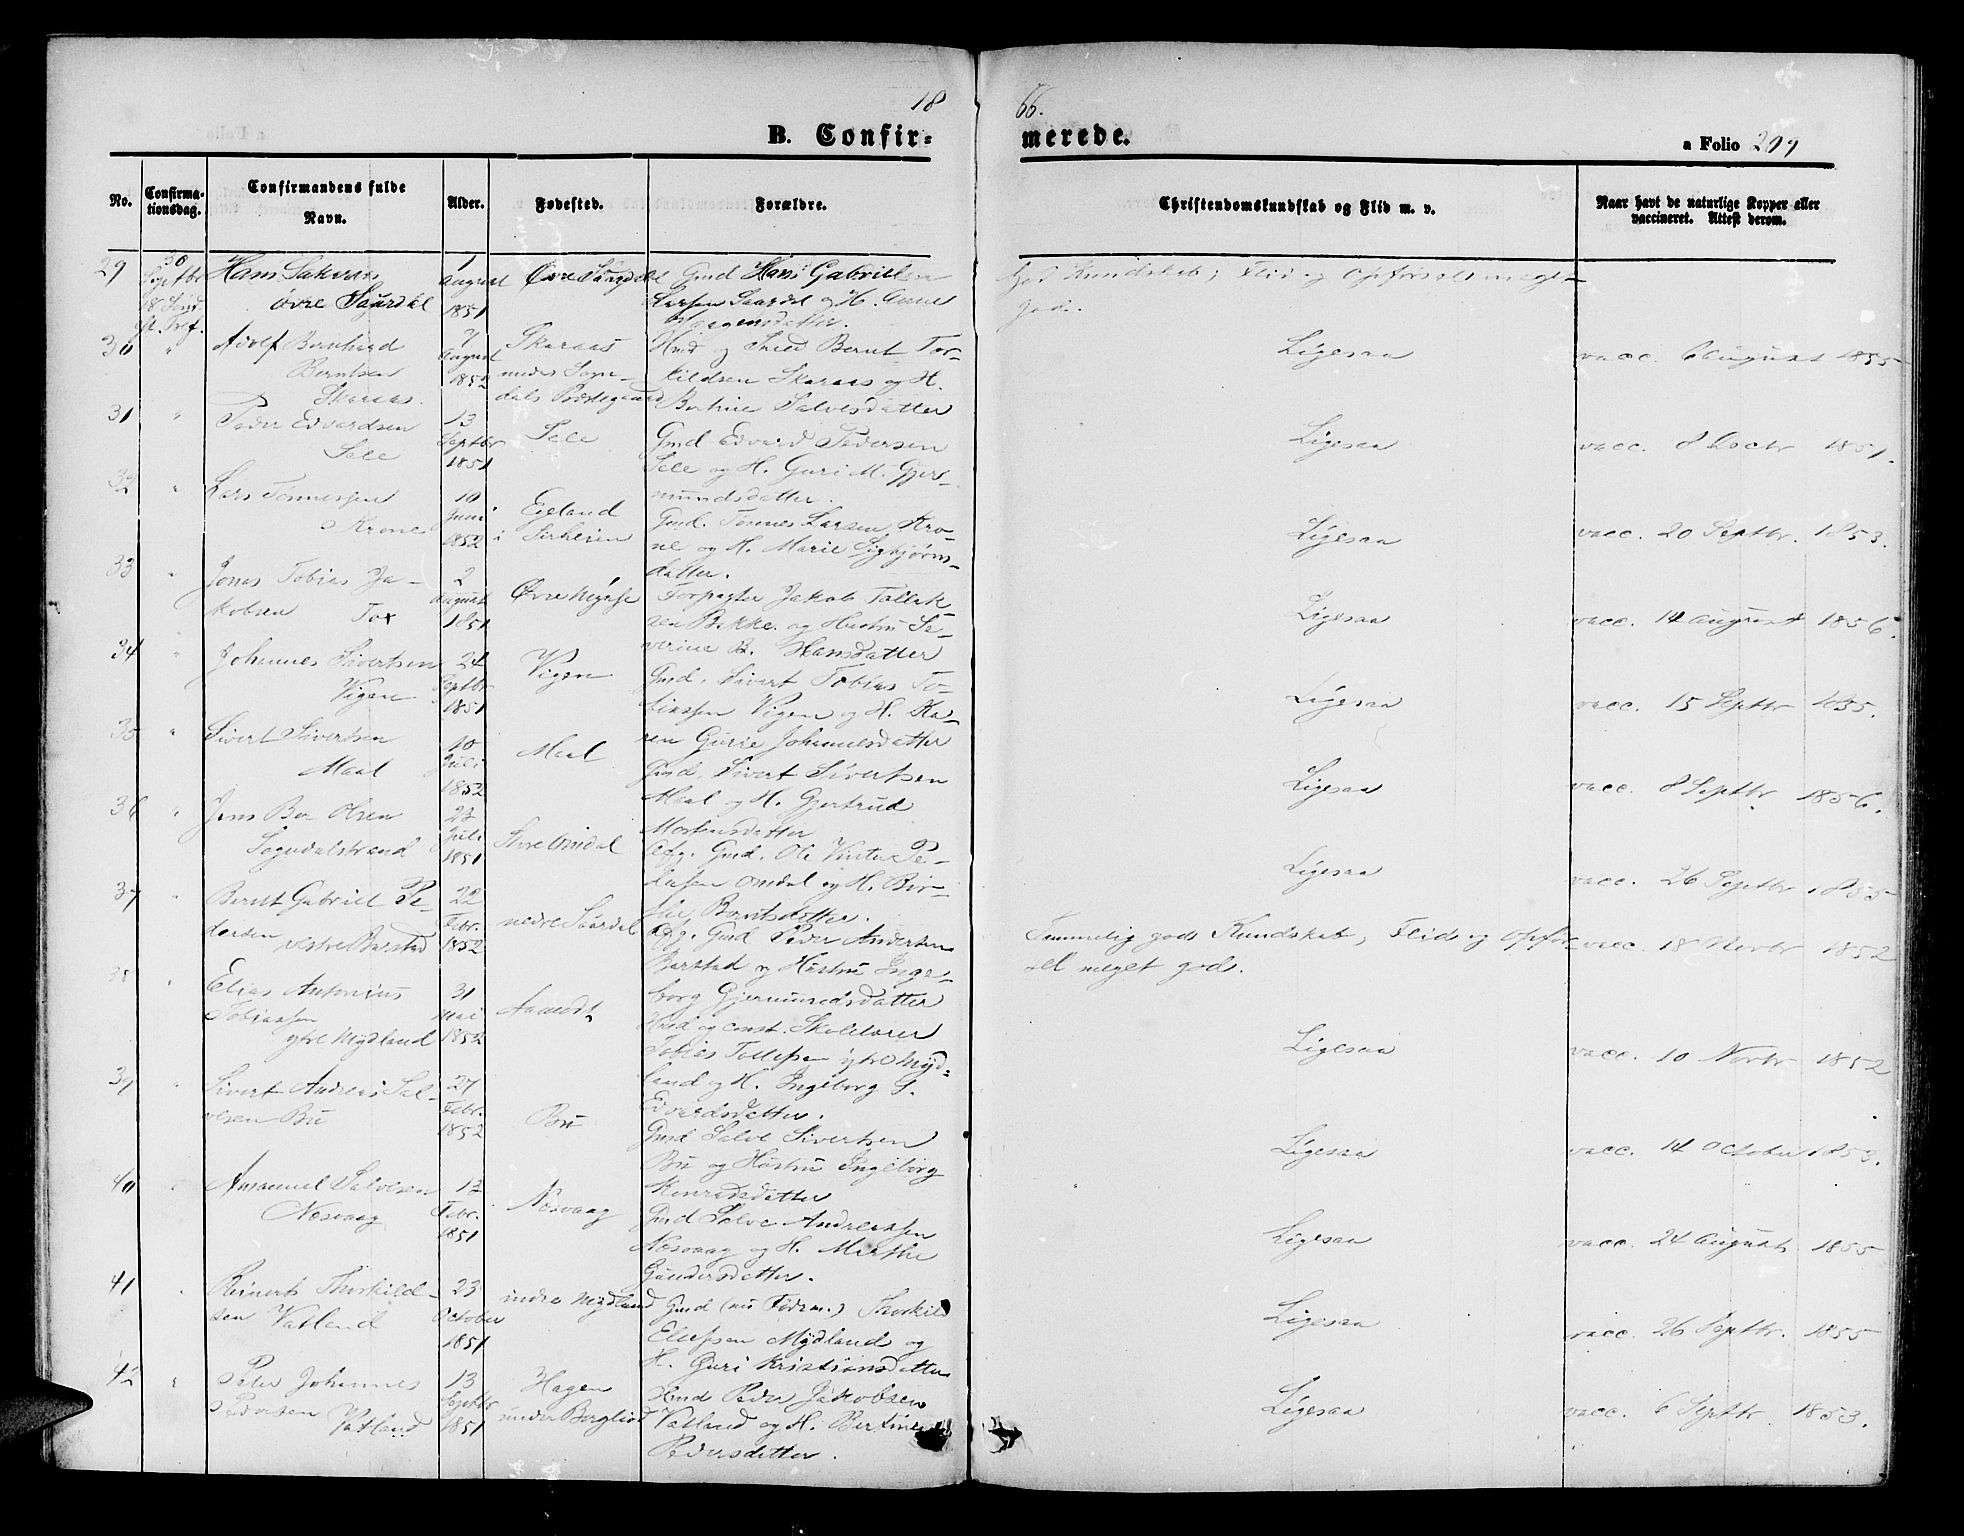 18 66.
B. Confir- merede.
a Folio 299
No.
Confirma-
tionsdag.
Confirmandens fulde
Navn.
Alder.
Fødested.
Forældre.
Christendomskundskab og Flid m. v.
Naar havt de naturlige Kopper eller
vaccineret. Attest derom.
29 30 Septbr 18 Sønd. Tref.
Hans
øvre Saurdal
1 August 1851
Øvre Saurdal
Gmd Hans Gabriel
Larsen Saurdal og H.
God Kundskab, Flid og Opførsel meget
god.
30 " Adolf Bernhard
Berntsen
Skaraas.
7 August 1852
Skaraas
under Sogn-
dals Præstegaard
Hmd og Bernt Tor-
kildsen Skaraas og H.
Bertine Salvesdatter
Ligesaa
vacc. 6 August 1855
31 " Peder Edvardsen
Sele
13 Septbr 1851
Sele
Gmd Edvard Pedersen
Sele og H. Guri M. Gjer-
mundsdatter.
Ligesaa
vacc. 8 Octr 1851.
32 " Lars Tønnessen
Krone
10 Juni 1852
Egeland
i Sirheien
Gmd. Tønnes Larsen Kro-
ne og H. Marie Sigbjørns-
datter.
Ligesaa
vacc. 20 Septbr. 1853.
33 " Jonas Tobias Ja-
kobsen Tox
2 August 1851
Øvre
Forpagter Jakob Tollak-
sen Bakke og Hustru Se-
verine B. Hansdatter
Ligesaa
vacc. 14 August 1856.
34 " Johannes Sivertsen
Vigen
24 Septbr 1851
Vigen
Gmd. Sivert Tobias To-
biassen Vigen og H. Ka-
ren Gurie Johannesdatter
Ligesaa
vacc. 15 Septbr
35 " Sivert Sivertsen
Maal
10 Juli 1852
Maal
Gmd. Sivert Sivertsen
Maal og H. Gjertrud
Mortensdatter
Ligesaa
vacc. 8 Septbr 1856.
36 " Jens Olsen
Sogndalstrand
23 Juli 1851
Store Omdal
Afg. Gmd. Ole Pe-
dersen Omdal og H. Bir-
Berntsdatter.
Ligesaa
vacc. 26 Septbr 1855
37 " Bernt Gabriel Pe-
dersen vestre Barstad
22 Febr. 1852
nedre Saurdal
Afg. Gmd Peder Andersen
Barstad og Hustru Inge-
borg Gjermundsdatter
Temmelig god Kundskab, Flid og Opfør-
sel meget god.
vacc. 18 Novbr 1852
38 " Elias Antonius
Tobiassen
ytre Mydland
31 Mai 1852
Aamodt
Hmd og const. Skolelærer
Tobias Tollefsen ytre Myd-
land og H. Ingeborg S.
Edvardsdatter.
Ligesaa
vacc. 10 Novbr 1852
39 " Sivert Andreas Sal-
vesen Bu
27 Febr. 1852
Bu
Gmd Salve Sivertsen
Bu og Hustru Ingeborg
Konradsdatter
Ligesaa
vacc. 14 October 1853.
40 " Amanuel Salvesen
Nesvaag
13 Febr. 1851
Nesvaag
Gmd Salve Andreassen
Nesvaag og H. Marthe
Gundersdatter.
Ligesaa
vacc. 24 August 1855
41 " Reinert Thorkild-
sen Vatland
23 October 1851
indre Mydland
Gmd (nu Føderm.) Thorkild
Eliefsen Mydland og
H. Guri Kristiansdatter
Ligesaa
vacc. 26 Septbr. 1855
42 " Peter Johannes
Pedersen Vatland
13 Septbr 1851
Hagen
under Berglied
Hmd Peder Jakobsen
Vatland og H. Bertine
Pedersdatter.
Ligesaa
vacc. 6 Septbr. 1853.